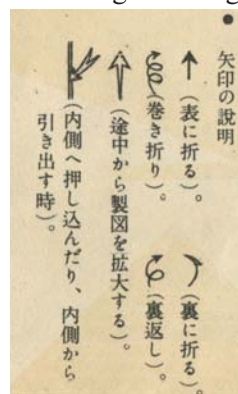 ● 矢印の説明
(表に折る)。
(裏に折る)。
(巻き折り)。
(裏返し)。
(途中から製図を拡大する)。
(内側へ押し込んだり、内側から
引き出す時)。